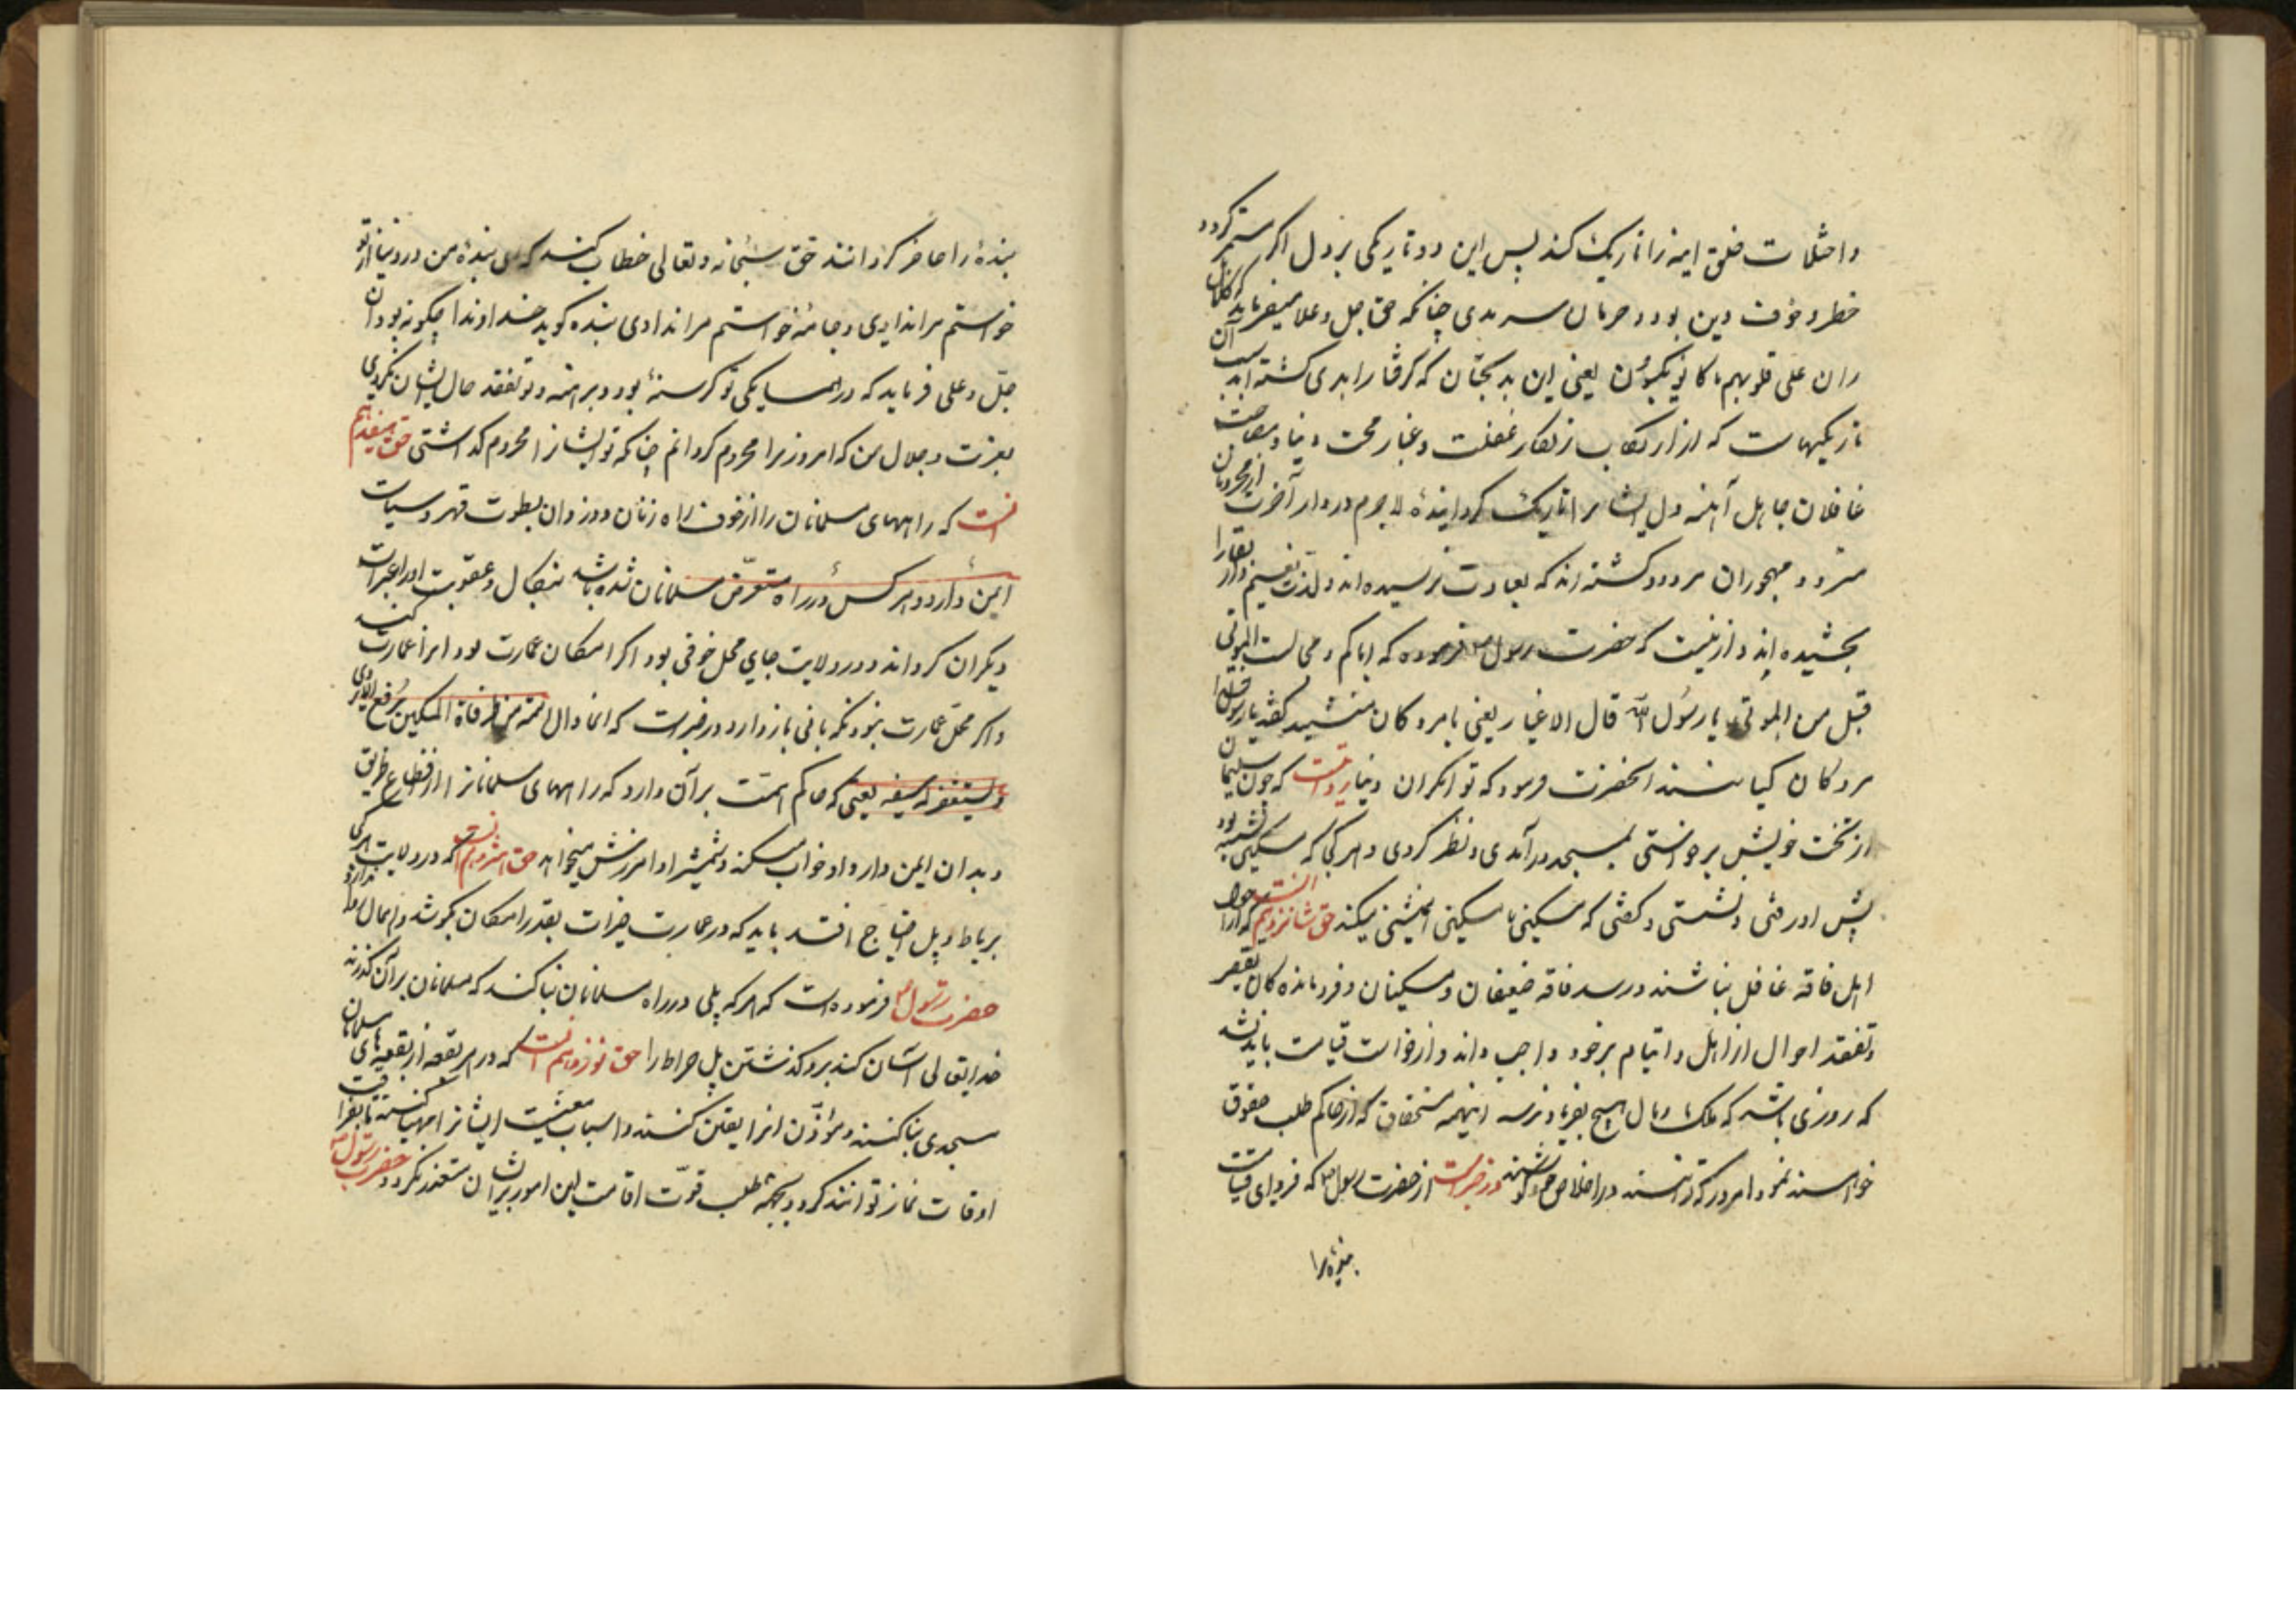 واختلاط خلق اینه را تاریک کند پس این دو تاریکی بر دل اگر مستمر گردد
خطر و خوف دین بود و حرمان سرمدی چنانکه حق جل و علا میفرماید که کلا بل
ران علی قلوبهم ما کانوا یکسبون یعنی این بدبختان که گرفتار ابدی گشته‌اند بسبب آن
تاریکیهاست که از ارتکاب زنکار غفلت و غبار محبت دنیا و مصاحبت
غافلان جاهل آینه دل ایشانرا تاریک گردانیده لاجرم در دار آخرت از محرومان
مردود و مهجوران مردود گشته‌اند که بسعادت نرسیده‌اند و لذت نعیم دار بقا را
نچشیده‌اند و ازینست که حضرت رسول فرموده که ایاکم و مجالست الموتی
قیل من الموتی یا رسول الله قال الاغنیا یعنی با مردکان منشینید گفتند یا رسول الله
مردکان کیانند انحضرت فرمود که توانکران دنیا روایتست که چون سلیمان
از تخت خویش برخواستی بمسجد درآمدی و نظر کردی و هر کجا که مسکینی نشسته بود
پیش او رفتی و نشستی و گفتی که مسکینی با مسکینی همنشینی میکند حق شانزدهم انست که از احوال
اهل فاقه غافل نباشند و در سد فاقه ضعیفان و مسکینان و فروماندکان تقصیر
و تفقد احوال ارامل و ایتام بر خود واجب داند و از خواست قیامت باندیشد
که روزی باشد که ملک و مال هیچ بفریاد نرسد اینهمه مستحقان که از حاکم طلب حقوق
خواهند نمود امروز که توانند در اخلاص خود کوشند در خبرست از حضرت رسول که فردای قیامت
بنده را
بنده را حاضر گردانند حق سبحانه و تعالی خطاب کند که ای بنده من در دنیا از تو
خواستم مرا ندادی و جامه خواستم مرا ندادی بنده کوید خداوندا چکونه بود آن
جل و علی فرماید که در همسایکی تو کرسنه بود و برهنه و تو تفقد حال ایشان نکردی
بعزت و جلال من که امروز ترا محروم کردانم چنانکه تو ایشانرا محروم گذاشتی حق هفدهم
انست که راههای مسلمانان را از خوف راه زنان و دزدان بسطوت قهر و سیاست
ایمن دارد و هر کس در راه متعرض مسلمانان شده باشد بنکال و عقوبت او را عبرت
دیکران کرداند و در ولایت جای محل خوفی بود اکر امکان عمارت بود انرا عمارت کند
و اکر محل عمارت نبود نکهبانی بازدارد در خبرست که
و یستغفر له سیفه یعنی که حاکم است بر آن دارد که راههای مسلمانانرا از قطاع طریق
و بدان ایمن دارد او خواب میکند و شمشیر او آمرزش میخواهد حق هژدهم انست که در ولایت هر کجا
برباط و پل احتیاج افتد باید که در عمارت خیرات بقدر امکان بکوشد و اهمال روا ندارد
حضرت رسول فرموده است که هر که پلی در راه مسلمانان بنا کند که مسلمانان بر آن گذرند
خدایتعالی آسان کند برو گذشتن پل صراط را حق نوزدهم انست که در هر بقعه از بقعهای مسلمانان
مسجدی بنا کنند و مؤذن انرا یقین کنند و اسباب معیشت ایشانرا مهیا کنند تا بفراغت
اوقات نماز توانند کرد و بجهة طلب قوت اقامت این امور بر ایشان متعذر نکردد حضرت رسول